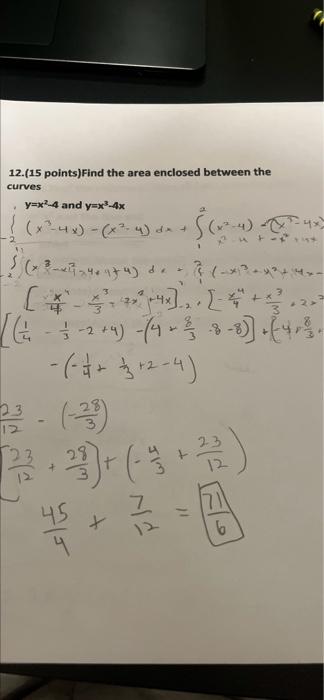 12.(15 points)Find the area enclosed between the
curves
y=x²-4 and y=x³-4x
∫ (x³-4x)-(x²-4) dx + ∫ (x²-4)-(x³-4x)
-2 1 2
[x⁴/4 - x³/3 - 2x² + 4x]
[(1/4 - 1/3 - 2 + 4) - (4 + 8/3 - 8 - 8)] + [-4 + 8/3
-(-1/4 + 1/3 + 2 - 4)
23/12 - (-28/3)
[23/12 + 28/3] + (-4/3 + 23/12)
45/4 + 7/12 = 71/6